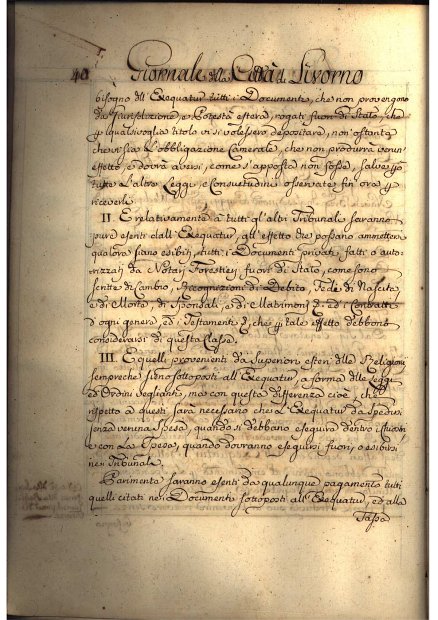 40 Giornale della Città di Livorno
bisogno dell'Exequatur tutti i Documenti, che non provengono
da Giurisdizione, e Potestà estera, rogati fuori di Stato, che
p qualsivoglia titolo vi si volessero depositare, non ostante
che vi sia l'obbligazione Camerale, che non produrrà verun'
effetto, e dovrà aversi, come s'apposta non fosse, salve p
tutte l'altre Leggi, e Consuetudini osservate fin ora p
riceverli
II. E relativamente a tutti gl'altri Tribunali saranno
pure esenti dall'Exequatur, all'effetto che possano ammettersi
qualora siano esibiti, tutti i Documenti privati fatti o auto-
rizzati da Notari Forestieri fuori di Stato, come sono
scritte di Cambio, Recognizioni di Debito, Fede di Nascita
e di Morte, di Sponsali, e di Matrimonj ed i Contratti
d'ogni genere, ed i Testamenti, che p tale effetto debbono
considerarsi di questa Classe.
III. E quelli provenienti da Superiori esteri delle Religioni
sempreche siano sottoposti all'Exequatur, a forma delle Leggi
ed Ordini Veglianti, ma con questa differenza cioè, che
rispetto a questi sarà necessario che l'Exequatur da spedirsi
senza veruna spesa, quando si debbano eseguire dentro i Chiostri
e con la spesa, quando dovranno eseguirsi fuori, o esibirsi
nei Tribunali.
Parimente saranno esenti da qualunque pagamento tutti
quelli citati nei Documenti sottoposti all'Exequatur, ed alla
Tassa